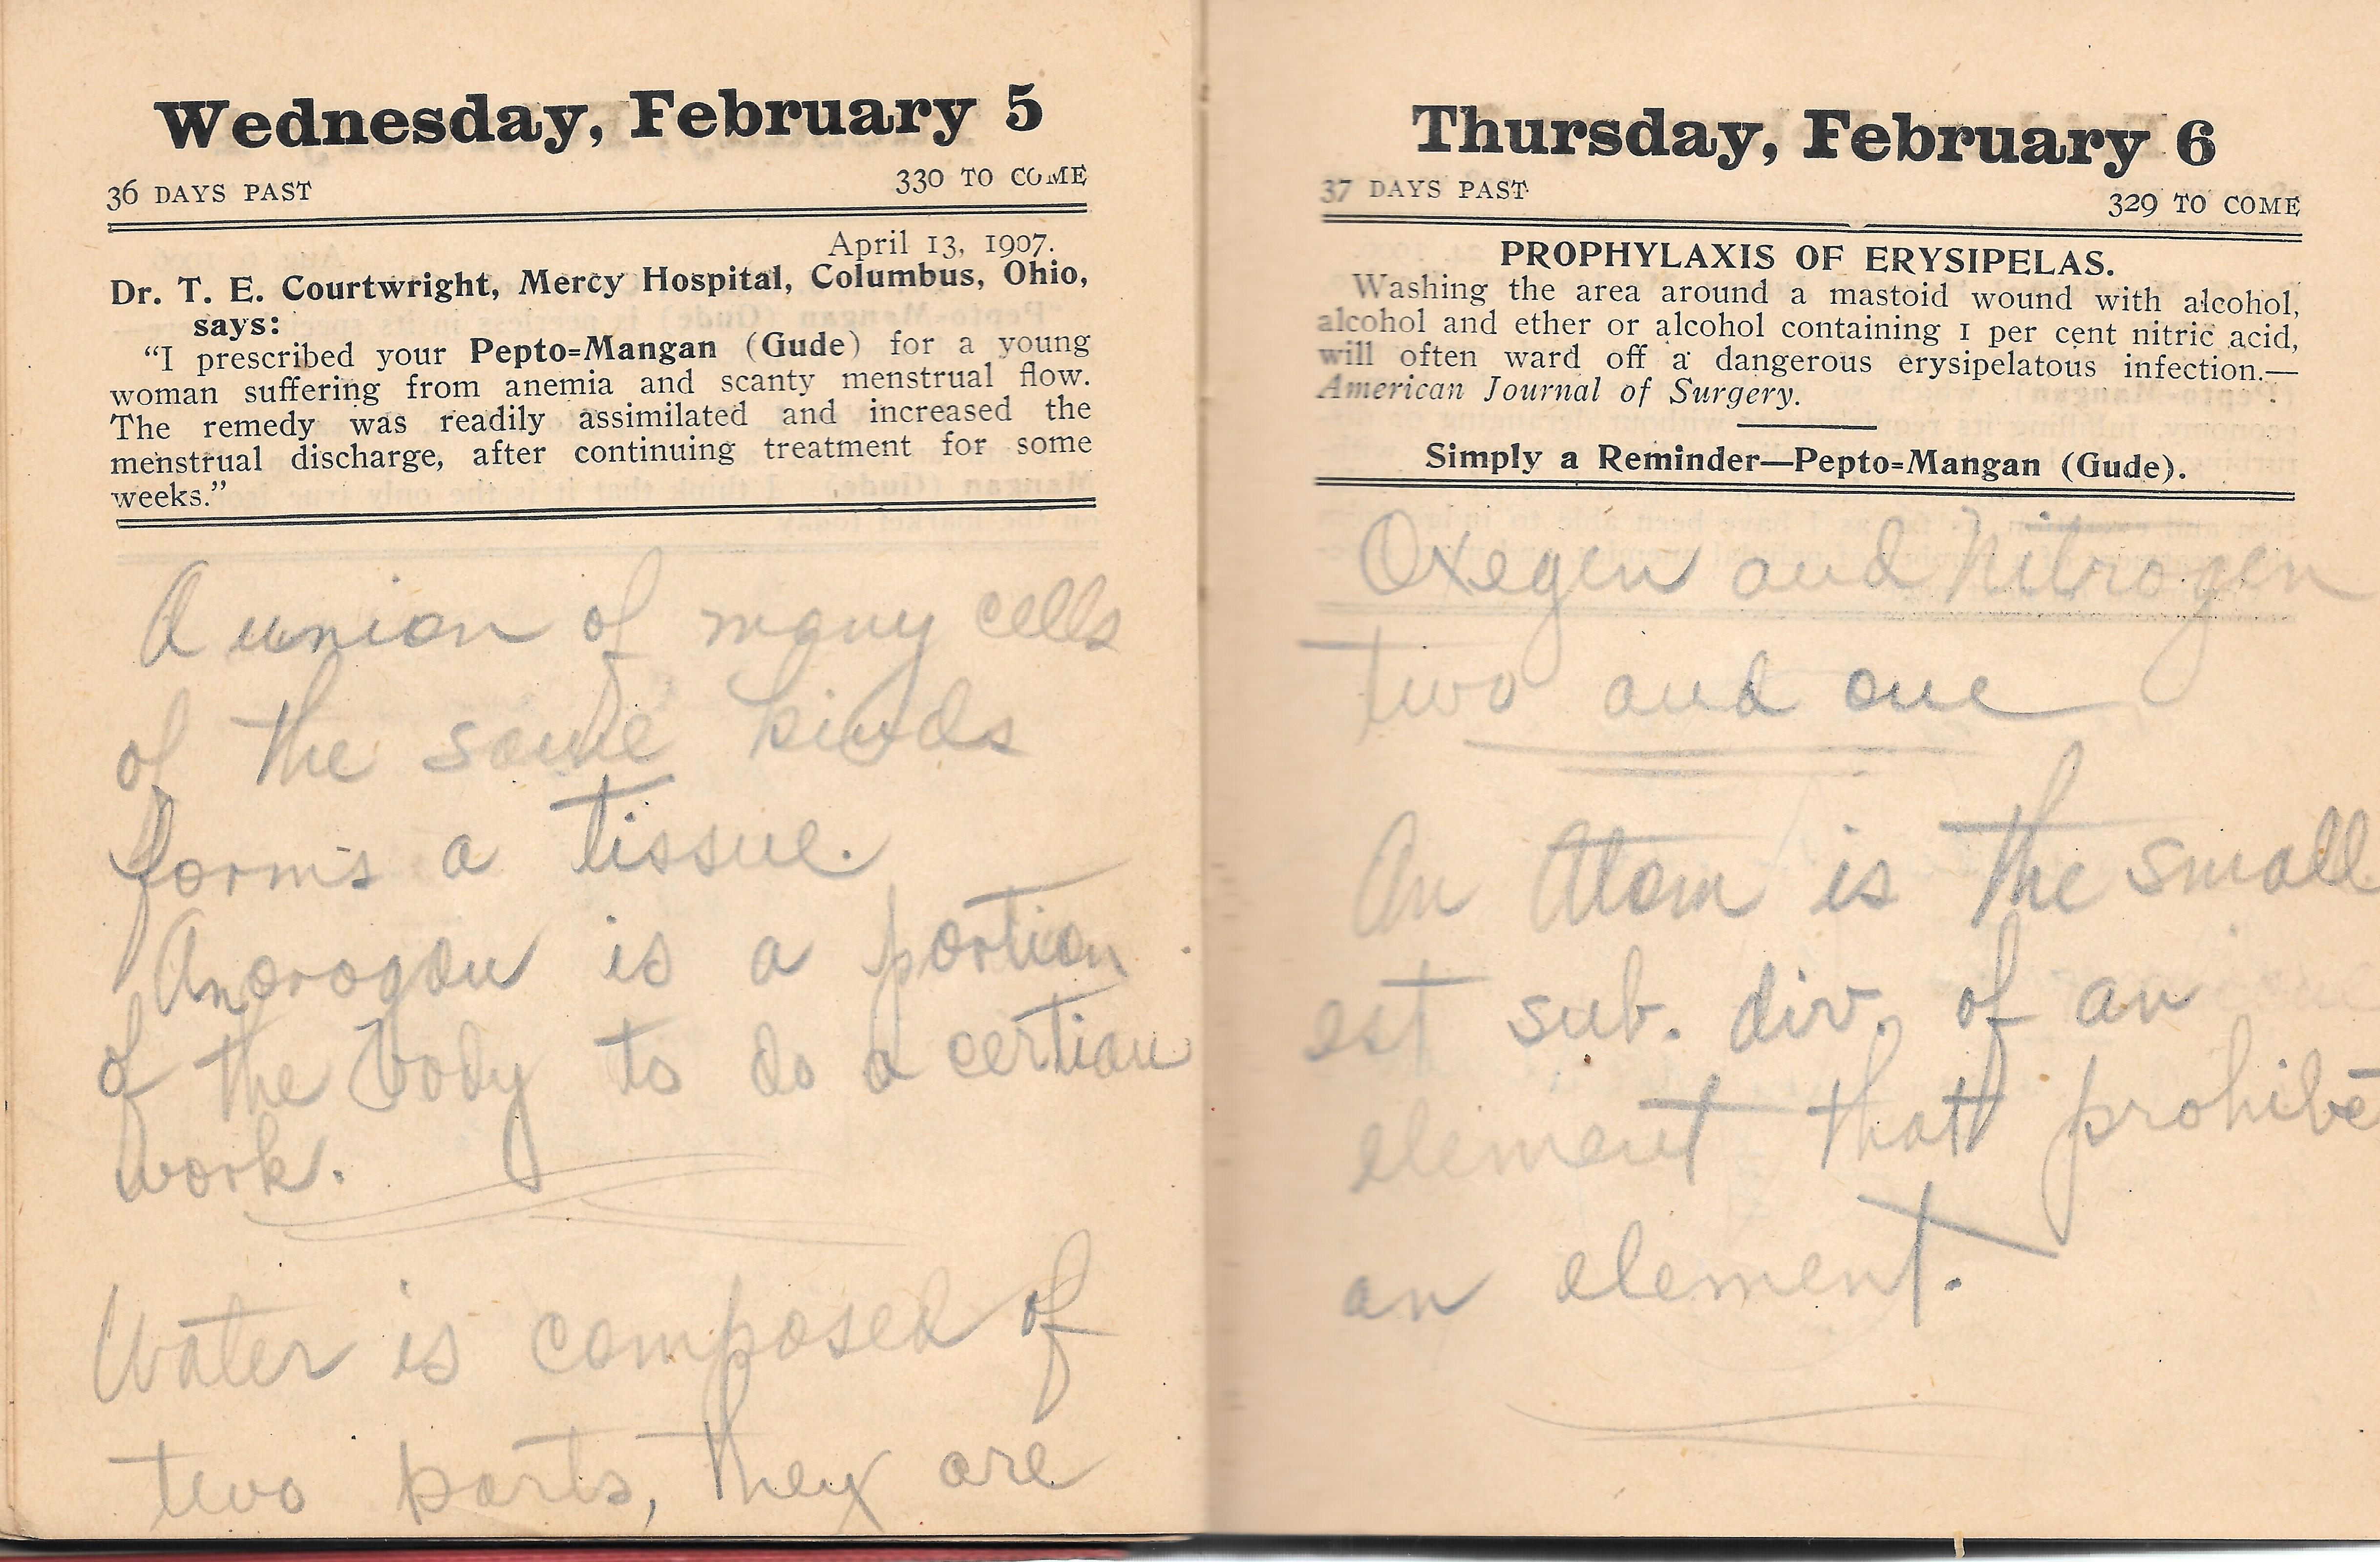 Wednesday, February 5
36 DAYS PAST 330 TO COME
April 13, 1907.
Dr. T. E. Courtwright, Mercy Hospital, Columbus, Ohio,
says:
"I prescribed your Pepto=Mangan (Gude) for a young
woman suffering from anemia and scanty menstrual flow.
The remedy was readily assimilated and increased the
menstrual discharge, after continuing treatment for some
weeks."
A union of many cells
of the same kinds
forms a tissue.
An orogan is a portion
of the body to do a certian
work.
Water is composed of
two parts, they are
Thursday, February 6
37 DAYS PAST 329 TO COME
PROPHYLAXIS OF ERYSIPELAS.
Washing the area around a mastoid wound with alcohol,
alcohol and ether or alcohol containing 1 per cent nitric acid,
will often ward off a dangerous erysipelatous infection.—
American Journal of Surgery.
Simply a Reminder—Pepto=Mangan (Gude).
Oxegen and Nitrogen
two and one
An Atom is the small
est sub. div. of an
element that prohibe
an element.